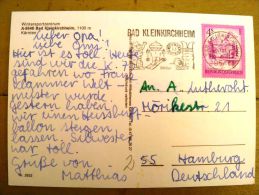 Wintersportzentrum
A-9546 Bad Kleinkirchheim, 1100 m
Kärnten
Lieber Opa!
liebe Oma!
Hier ist es toll. Heute
sind wir die
gefahren wo Franz
klammer Welt-
meister wurde.
gestern haben
wir einen Heiss
ballon steigen
lassen. Silvester
war toll.
Grüße von
Matthias
BAD KLEINKIRCHHEIM
REPUBLIK ÖSTERREICH
An. A. Lutheroht
Mörikestr. 21
55 Hamburg
Deutschland